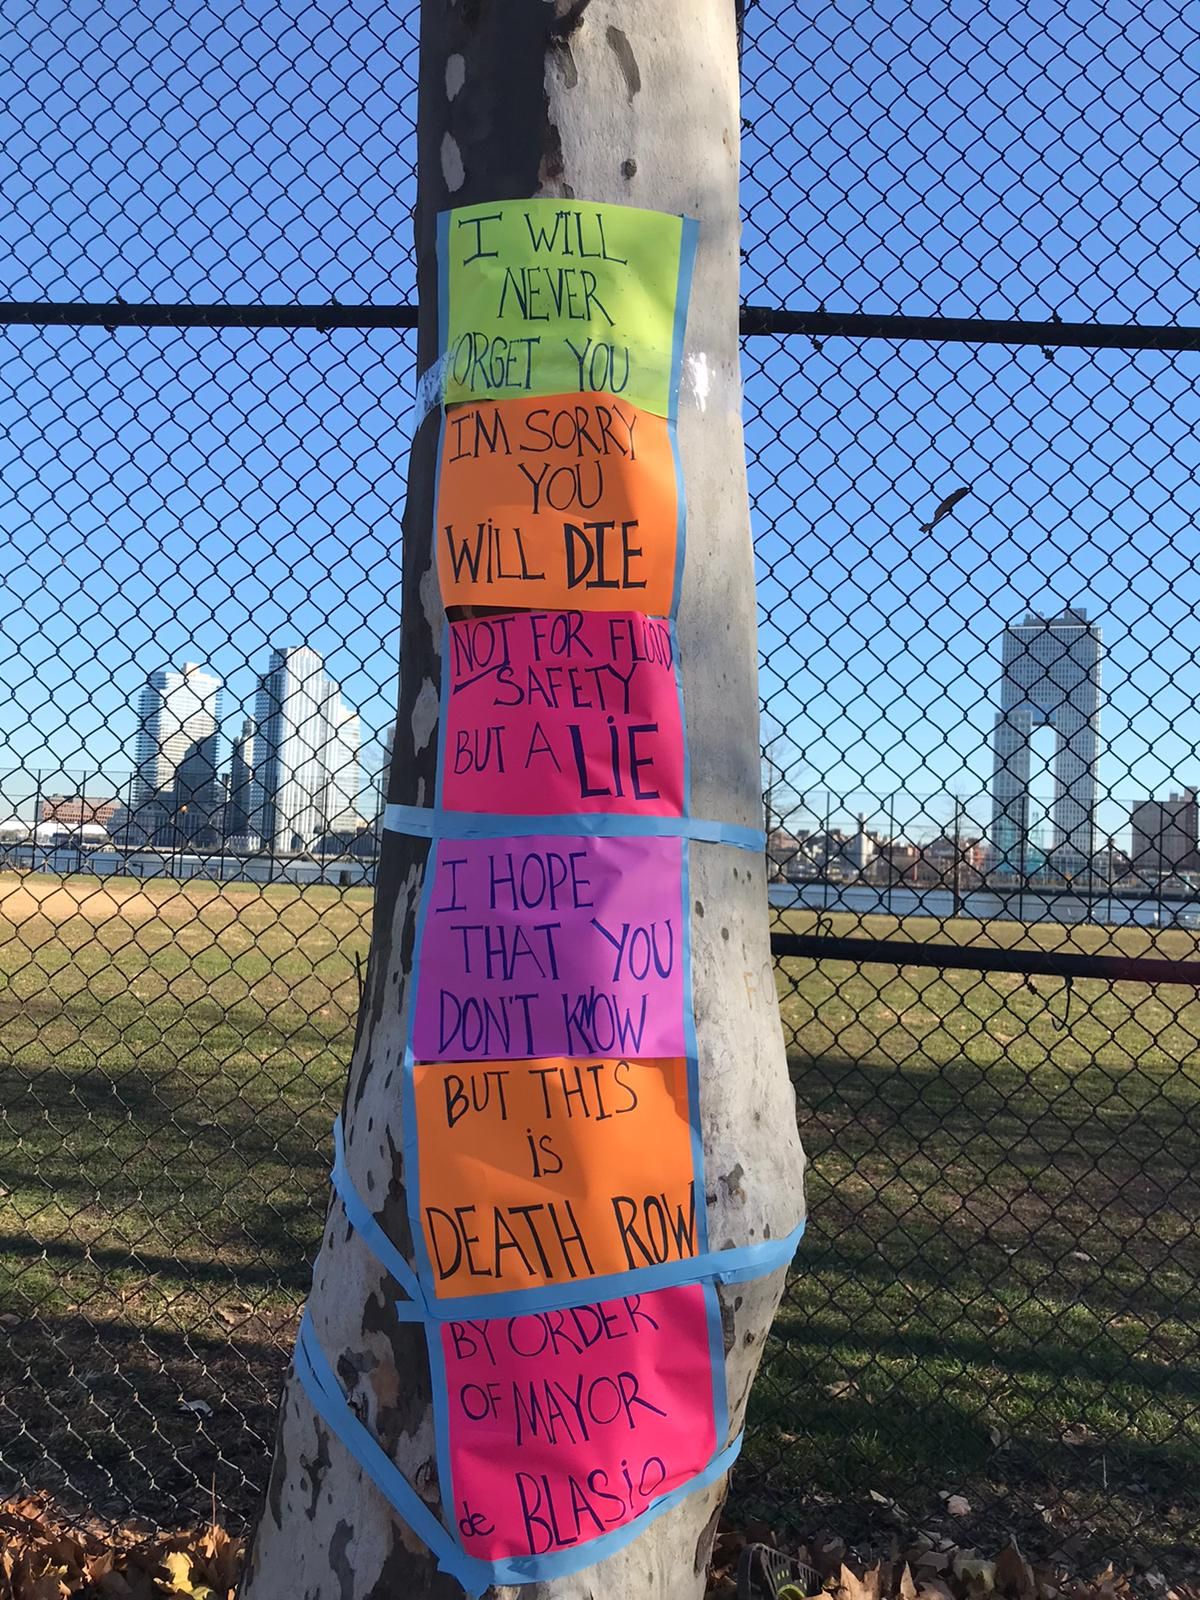 I WILL
NEVER
FORGET YOU
I'M SORRY
YOU
WiLL DIE
NOT FOR FLOOD
SAFETY
BUT A LiE
I HOPE
THAT YOU
DON'T KNOW
BUT THIS
iS
DEATH ROW
BY ORDER
OF MAYOR
de BLASiO